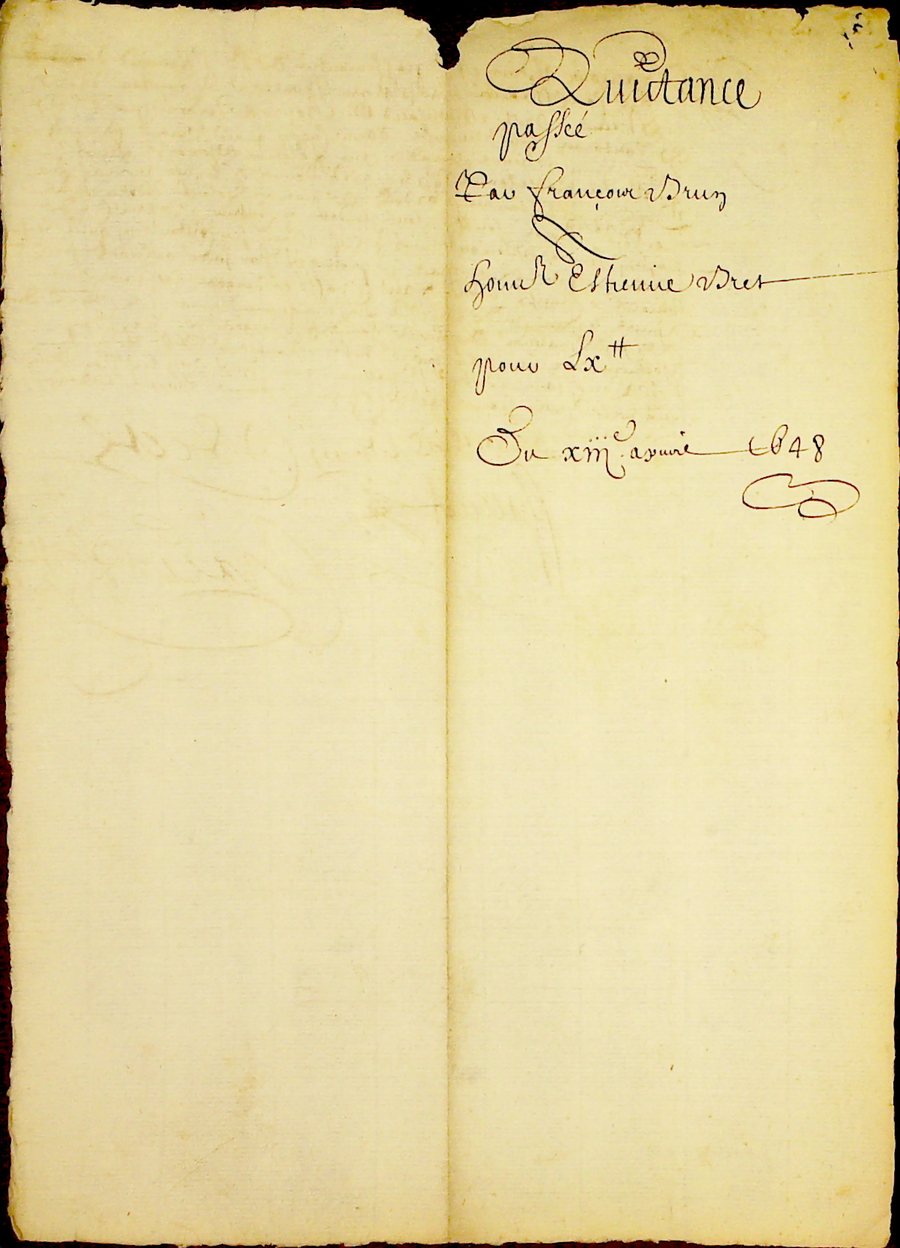 Quictance
passée
Par françois Brun
honn^e Estienne Bret
pour Lx^tt
Du xiii^e apvril 1648